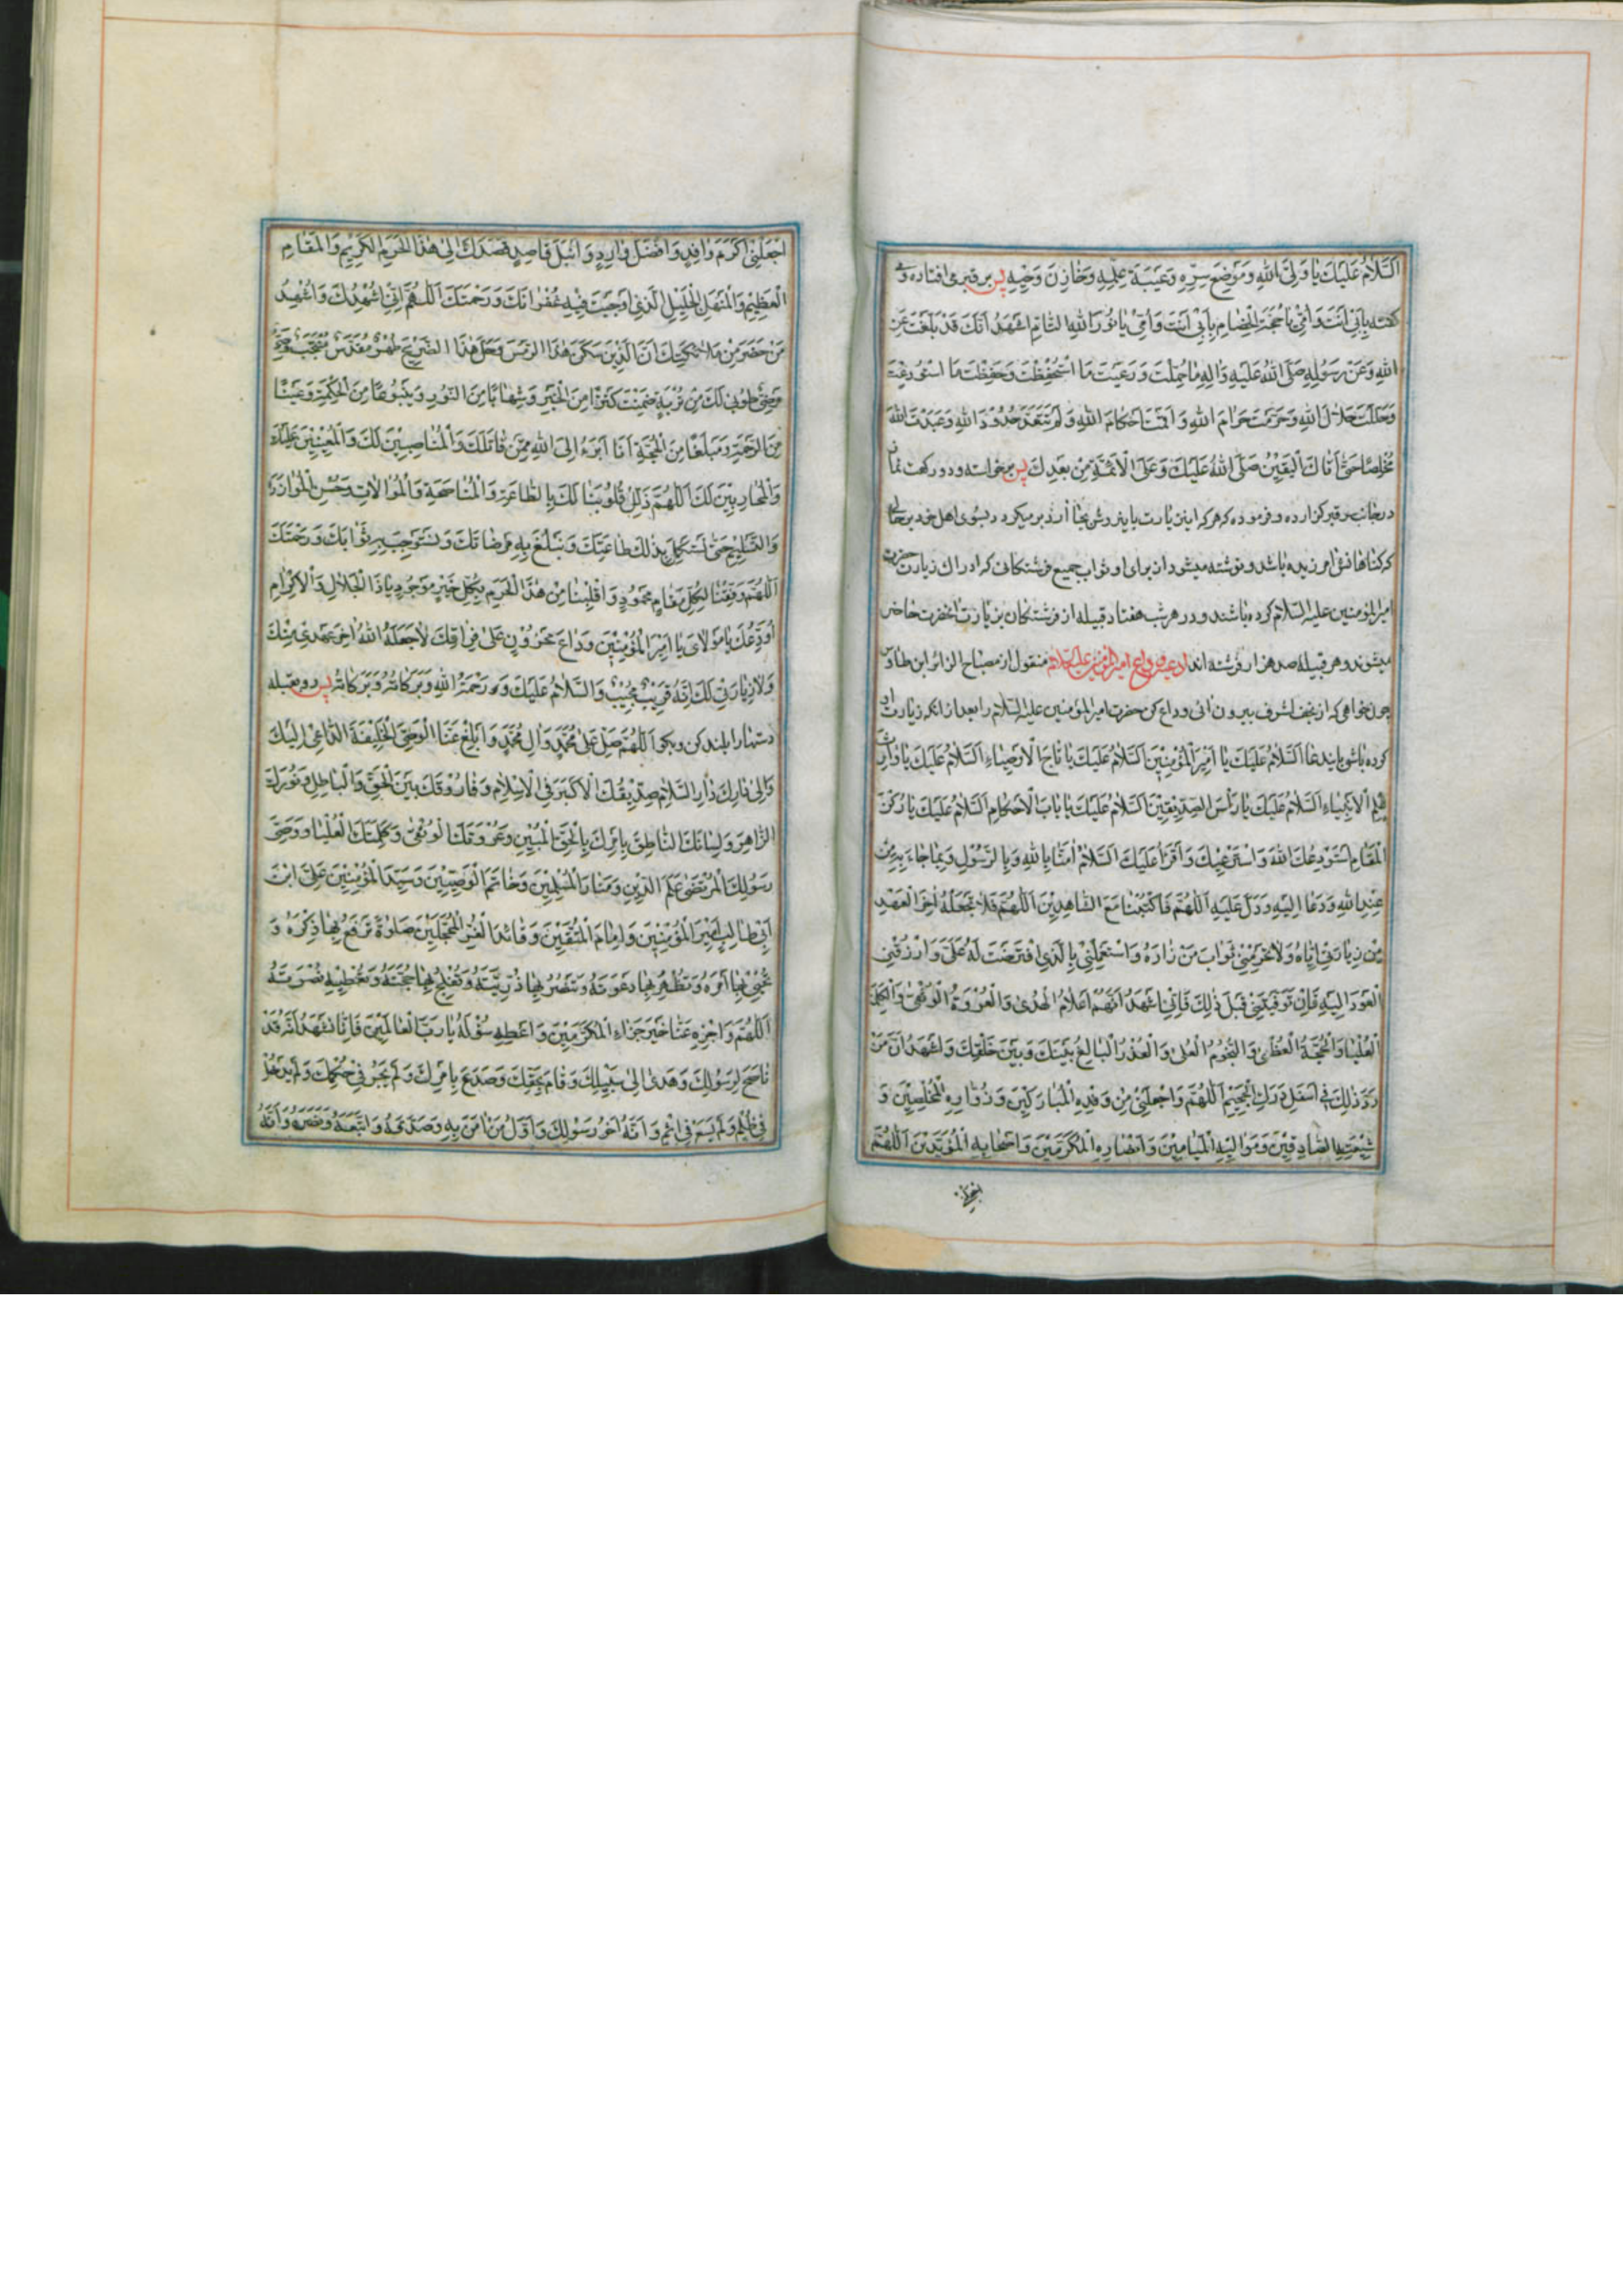 اَلسَّلامُ عَلَيْكَ يا وَلِيَّ اللهِ وَمَوْضِعَ سِرِّهِ وَعَيْبَةَ عِلْمِهِ وَخازِنَ وَحْيِهِ پس بر قبر می افتاده و
گفته بِاَبي اَنْتَ وَاُمّي يا حُجَّةَ الْخِصامِ بِاَبي اَنْتَ وَاُمّي يا نُورَ اللهِ التّامِّ اَشْهَدُ اَنَّكَ قَدْ بَلَّغْتَ عَنِ
اللهِ وَعَنْ رَسُولِهِ صَلَّى اللهُ عَلَيْهِ وَالِهِ ما حُمِّلْتَ وَرَعَيْتَ مَا اسْتُحْفِظْتَ وَحَفِظْتَ مَا اسْتُودِعْتَ
وَحَلَّلْتَ حَلالَ اللهِ وَحَرَّمْتَ حَرامَ اللهِ وَاَقَمْتَ اَحْكامَ اللهِ وَلَمْ تَتَعَدَّ حُدُودَ اللهِ وَعَبَدْتَ اللهَ
مُخْلِصًا حَتّى اَتاكَ الْيَقينُ صَلَّى اللهُ عَلَيْكَ وَعَلَى الْاَئِمَّةِ مِنْ بَعْدِكَ پس برخواسته و دو رکعت نماز
در جانب سر قبر گزارده و فرموده که هر که این زیارت باین روش بجا آرد بر میگردد بسوی اهل خود بر حالی
که گناهانش امرزیده باشد و نوشته میشود از برای او ثواب جمیع فرشتگانی که ادراک زیارت حضرت
امیر المؤمنین علیه السلام کرده باشند و در هر شب هفتاد قبیله از فرشتگان بزیارت انحضرت حاضر
میشوند و هر قبیله صد هزار فرشته اند ادعیه وداع امیر المؤمنین علیه السلام منقول از مصباح الزائر ابن طاوس
چون خواهی که از نجف اشرف بیرون ائی وداع کن حضرت امیر المؤمنین علیه السلام را بعد از انکه زیارت او
کرده باشی باین دعا اَلسَّلامُ عَلَيْكَ يا اَميرَ الْمُؤْمِنينَ اَلسَّلامُ عَلَيْكَ يا تاجَ الْاَوْصِياءِ اَلسَّلامُ عَلَيْكَ يا وارِثَ
عِلْمِ الْاَنْبِياءِ اَلسَّلامُ عَلَيْكَ يا رَأْسَ الصِّدّيقينَ اَلسَّلامُ عَلَيْكَ يا بابَ الْاَحْكامِ اَلسَّلامُ عَلَيْكَ يا رُكْنَ
الْمَقامِ اَسْتَوْدِعُكَ اللهَ وَاَسْتَرْعيكَ وَاَقْرَأُ عَلَيْكَ السَّلامَ امَنّا بِاللهِ وَبِالرَّسُولِ وَبِما جاءَ بِهِ مِنْ
عِنْدِ اللهِ وَدَعا اِلَيْهِ وَدَلَّ عَلَيْهِ اَللّهُمَّ فَاكْتُبْنا مَعَ الشّاهِدينَ اَللّهُمَّ فَلا تَجْعَلْهُ اخِرَ الْعَهْدِ
مِنْ زِيارَتي اِيّاهُ وَلا تَحْرِمْني ثَوابَ مَنْ زارَهُ وَاسْتَعْمِلْني بِالَّذي افْتَرَضْتَ لَهُ عَلَيَّ وَارْزُقْنِي
الْعَوْدَ اِلَيْهِ فَاِنْ تَوَفَّيْتَني قَبْلَ ذلِكَ فَاِنّي اَشْهَدُ اَنَّهُمْ اَعْلامُ الْهُدى وَالْعُرْوَةُ الْوُثْقى وَالْكَلِمَةُ
الْعُلْيا وَالْحُجَّةُ الْعُظْمى وَالنُّجُومُ الْعُلى وَالْعُذْرُ الْبالِغُ بَيْنَكَ وَبَيْنَ خَلْقِكَ وَاَشْهَدُ اَنَّ مَنْ
رَدَّ ذلِكَ في اَسْفَلِ دَرَكِ الْجَحيمِ اَللّهُمَّ وَاجْعَلْني مِنْ وَفْدِهِ الْمُبارَكينَ وَزُوّارِهِ الْمُخْلِصينَ وَ
شيعَتِهِ الصّادِقينَ وَمَواليهِ الْمَيامينَ وَاَنْصارِهِ الْمُكَرَّمينَ وَاَصْحابِهِ الْمُؤَيَّدينَ اَللّهُمَّ
اجعلنی
اجْعَلْني اَكْرَمَ وافِدٍ وَاَفْضَلَ وارِدٍ وَاَنْبَلَ قاصِدٍ قَصَدَكَ اِلى هذَا الْحَرَمِ الْكَريمِ وَالْمَقامِ
الْعَظيمِ وَالْمَنْهَلِ الْجَليلِ الَّذي اَوْجَبْتَ فيهِ غُفْرانَكَ وَرَحْمَتَكَ اَللّهُمَّ اِنّي اُشْهِدُكَ وَاُشْهِدُ
مَنْ حَضَرَ مِنْ مَلائِكَتِكَ اَنَّ الَّذي سَكَنَ هذَا الرَّمْسَ وَحَلَّ هذَا الضَّريحَ طُهْرٌ مُقَدَّسٌ مُنْتَجَبٌ وَصِيٌّ
مَرْضِيٌّ طُوبى لَكِ مِنْ تُرْبَةٍ ضَمِنَتْ كَنْزًا مِنَ الْخَيْرِ وَشِهابًا مِنَ النُّورِ وَيَنْبُوعًا مِنَ الْحِكْمَةِ وَعَيْنًا
مِنَ الرَّحْمَةِ وَمَبْلَغًا مِنَ الْحُجَّةِ اَنَا اَبْرَءُ اِلَى اللهِ مِمَّنْ قاتَلَكَ وَالْمُناصِبينَ لَكَ وَالْمُعينينَ عَلَيْكَ
وَالْمُحارِبينَ لَكَ اَللّهُمَّ ذَلِّلْ قُلُوبَنا لَكَ بِالطّاعَةِ وَالْمُناصَحَةِ وَالْمُوالاتِ وَحُسْنِ الْمُوازَرَةِ
وَالتَّسْليمِ حَتّى نَسْتَكْمِلَ بِذلِكَ طاعَتَكَ وَنَبْلُغَ بِهِ مَرْضاتَكَ وَنَسْتَوْجِبَ بِهِ ثَوابَكَ وَرَحْمَتَكَ
اَللّهُمَّ وَفِّقْنا لِكُلِّ مَقامٍ مَحْمُودٍ وَاقْلِبْنا مِنْ هذَا الْحَرَمِ بِكُلِّ خَيْرٍ مَوْجُودٍ يا ذَا الْجَلالِ وَالْاِكْرامِ
اُوَدِّعُكَ يا مَوْلايَ يا اَميرَ الْمُؤْمِنينَ وَداعَ مَحْزُونٍ عَلى فِراقِكَ لا جَعَلَهُ اللهُ اخِرَ عَهْدي مِنْكَ
وَلا زِيارَتي لَكَ اِنَّهُ قَريبٌ مُجيبٌ وَالسَّلامُ عَلَيْكَ وَرَحْمَةُ اللهِ وَبَرَكاتُهُ پس رو بقبله
دستها را بلند کن و بگو اَللّهُمَّ صَلِّ عَلى مُحَمَّدٍ وَالِ مُحَمَّدٍ وَاَبْلِغْ عَنَّا الْوَصِيَّ الْخَليفَةَ الدّاعِيَ اِلَيْكَ
وَاِلى دارِكَ دارِ السَّلامِ صِدّيقَكَ الْاَكْبَرَ فِي الْاِسْلامِ وَفارُوقَكَ بَيْنَ الْحَقِّ وَالْباطِلِ وَنُورَكَ
الزّاهِرَ وَلِسانَكَ النّاطِقَ بِاَمْرِكَ بِالْحَقِّ الْمُبينِ وَعُرْوَتَكَ الْوُثْقى وَكَلِمَتَكَ الْعُلْيا وَوَصِيَّ
رَسُولِكَ الْمُرْتَضى عَلَمَ الدّينِ وَمَنارَ الْمُسْلِمينَ وَخاتَمَ الْوَصِيّينَ وَسَيِّدَ الْمُؤْمِنينَ عَلِيَّ ابْنَ
اَبي طالِبٍ اَميرَ الْمُؤْمِنينَ وَاِمامَ الْمُتَّقينَ وَقائِدَ الْغُرِّ الْمُحَجَّلينَ صَلوةً تَرْفَعُ بِها ذِكْرَهُ وَ
تُحْيي بِها اَمْرَهُ وَتُظْهِرُ بِها دَعْوَتَهُ وَتَنْصُرُ بِها ذُرِّيَّتَهُ وَتُفْلِجُ بِها حُجَّتَهُ وَتُعْطيهِ نُصْرَتَهُ
اَللّهُمَّ وَاجْزِهِ عَنّا خَيْرَ جَزاءِ الْمُكَرَّمينَ وَاَعْطِهِ سُؤْلَهُ يا رَبَّ الْعالَمينَ فَاِنّا نَشْهَدُ اَنَّهُ قَدْ
ناصَحَ لِرَسُولِكَ وَهَدى اِلى سَبيلِكَ وَقامَ بِحَقِّكَ وَصَدَعَ بِاَمْرِكَ وَلَمْ يَجُرْ في حُكْمِكَ وَلَمْ يَدْخُلْ
في ظُلْمٍ وَلَمْ يَسْعَ في اِثْمٍ وَاَنَّهُ اَخُو رَسُولِكَ وَاَوَّلُ مَنْ امَنَ بِهِ وَصَدَّقَهُ وَاتَّبَعَهُ وَنَصَرَهُ وَاَنَّهُ